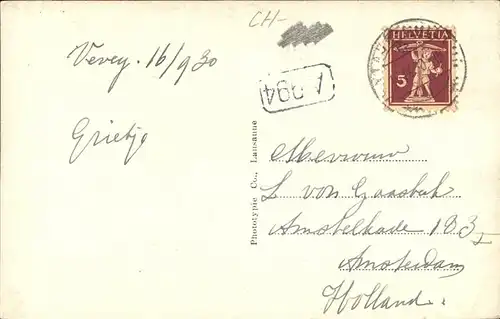 CH-
HELVETIA
5
Vevey. 16/9 30
Grietje
Mevrouw
L von Gaasbeek
Amstelkade 183
Amsterdam
Holland.
Phototypie Co., Lausanne